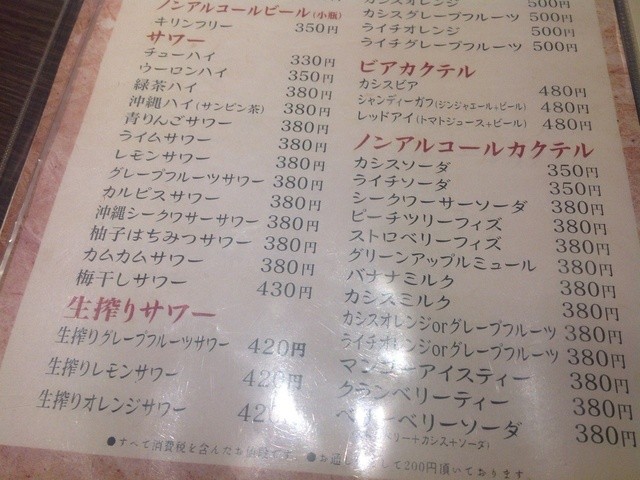 ノンアルコールビール(小瓶)
キリンフリー 350円
サワー
チューハイ 330円
ウーロンハイ 350円
緑茶ハイ 380円
沖縄ハイ(サンピン茶) 380円
青りんごサワー 380円
ライムサワー 380円
レモンサワー 380円
グレープフルーツサワー 380円
カルピスサワー 380円
沖縄シークワサーサワー 380円
柚子はちみつサワー 380円
カムカムサワー 380円
梅干しサワー 430円
生搾りサワー
生搾りグレープフルーツサワー 420円
生搾りレモンサワー 420円
生搾りオレンジサワー 420円
カシスオレンジ 500円
カシスグレープフルーツ 500円
ライチオレンジ 500円
ライチグレープフルーツ 500円
ビアカクテル
カシスビア 480円
シャンディーガフ(ジンジャエール+ビール) 480円
レッドアイ(トマトジュース+ビール) 480円
ノンアルコールカクテル
カシスソーダ 350円
ライチソーダ 350円
シークワーサーソーダ 380円
ピーチツリーフィズ 380円
ストロベリーフィズ 380円
グリーンアップルミュール 380円
バナナミルク 380円
カシスミルク 380円
カシスオレンジorグレープフルーツ 380円
ライチオレンジorグレープフルーツ 380円
マンゴーアイスティー 380円
クランベリーティー 380円
ベリーベリーソーダ 380円
ベリー+カシス+ソーダ)
●すべて消費税を含んだお値段です。 ●お通しとして200円頂いております。